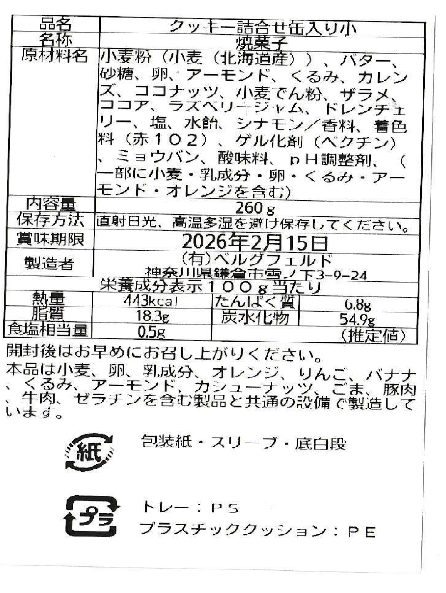 品名 クッキー詰合せ缶入り小
名称 焼菓子
原材料名 小麦粉（小麦（北海道産））、バター、
砂糖、卵、アーモンド、くるみ、カレン
ズ、ココナッツ、小麦でん粉、ザラメ、
ココア、ラズベリージャム、ドレンチェ
リー、塩、水飴、シナモン／香料、着色
料（赤１０２）、ゲル化剤（ペクチン）
、ミョウバン、酸味料、ｐＨ調整剤、（
一部に小麦・乳成分・卵・くるみ・アー
モンド・オレンジを含む）
内容量 260ｇ
保存方法 直射日光、高温多湿を避け保存してください。
賞味期限 2026年2月15日
製造者 （有）ベルグフェルド
神奈川県鎌倉市雪ノ下3-9-24
栄養成分表示１００ｇ当たり
熱量 443kcal たんぱく質 6.8g
脂質 18.3g 炭水化物 54.9g
食塩相当量 0.5g （推定値）
開封後はお早めにお召し上がりください。
本品は小麦、卵、乳成分、オレンジ、りんご、バナナ
、くるみ、アーモンド、カシューナッツ、ごま、豚肉
、牛肉、ゼラチンを含む製品と共通の設備で製造して
います。
紙 包装紙・スリーブ・底白段
プラ トレー：ＰＳ
プラスチッククッション：ＰＥ